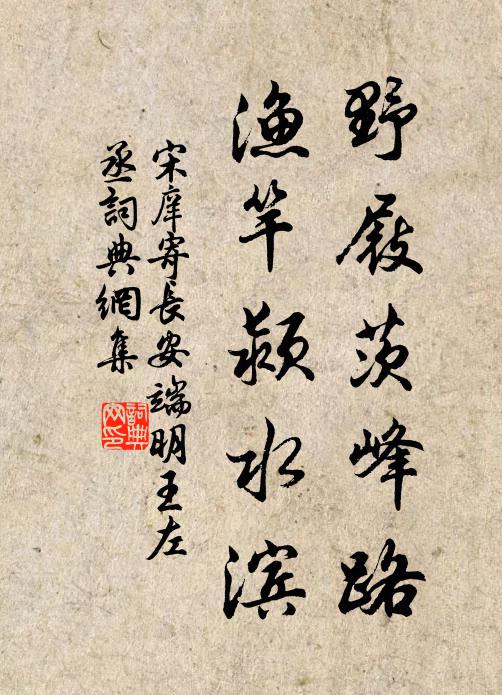 野屐茨峰路
渔竿颍水滨
宋庠寄长安端明王左
丞詞典網集
詞典網印